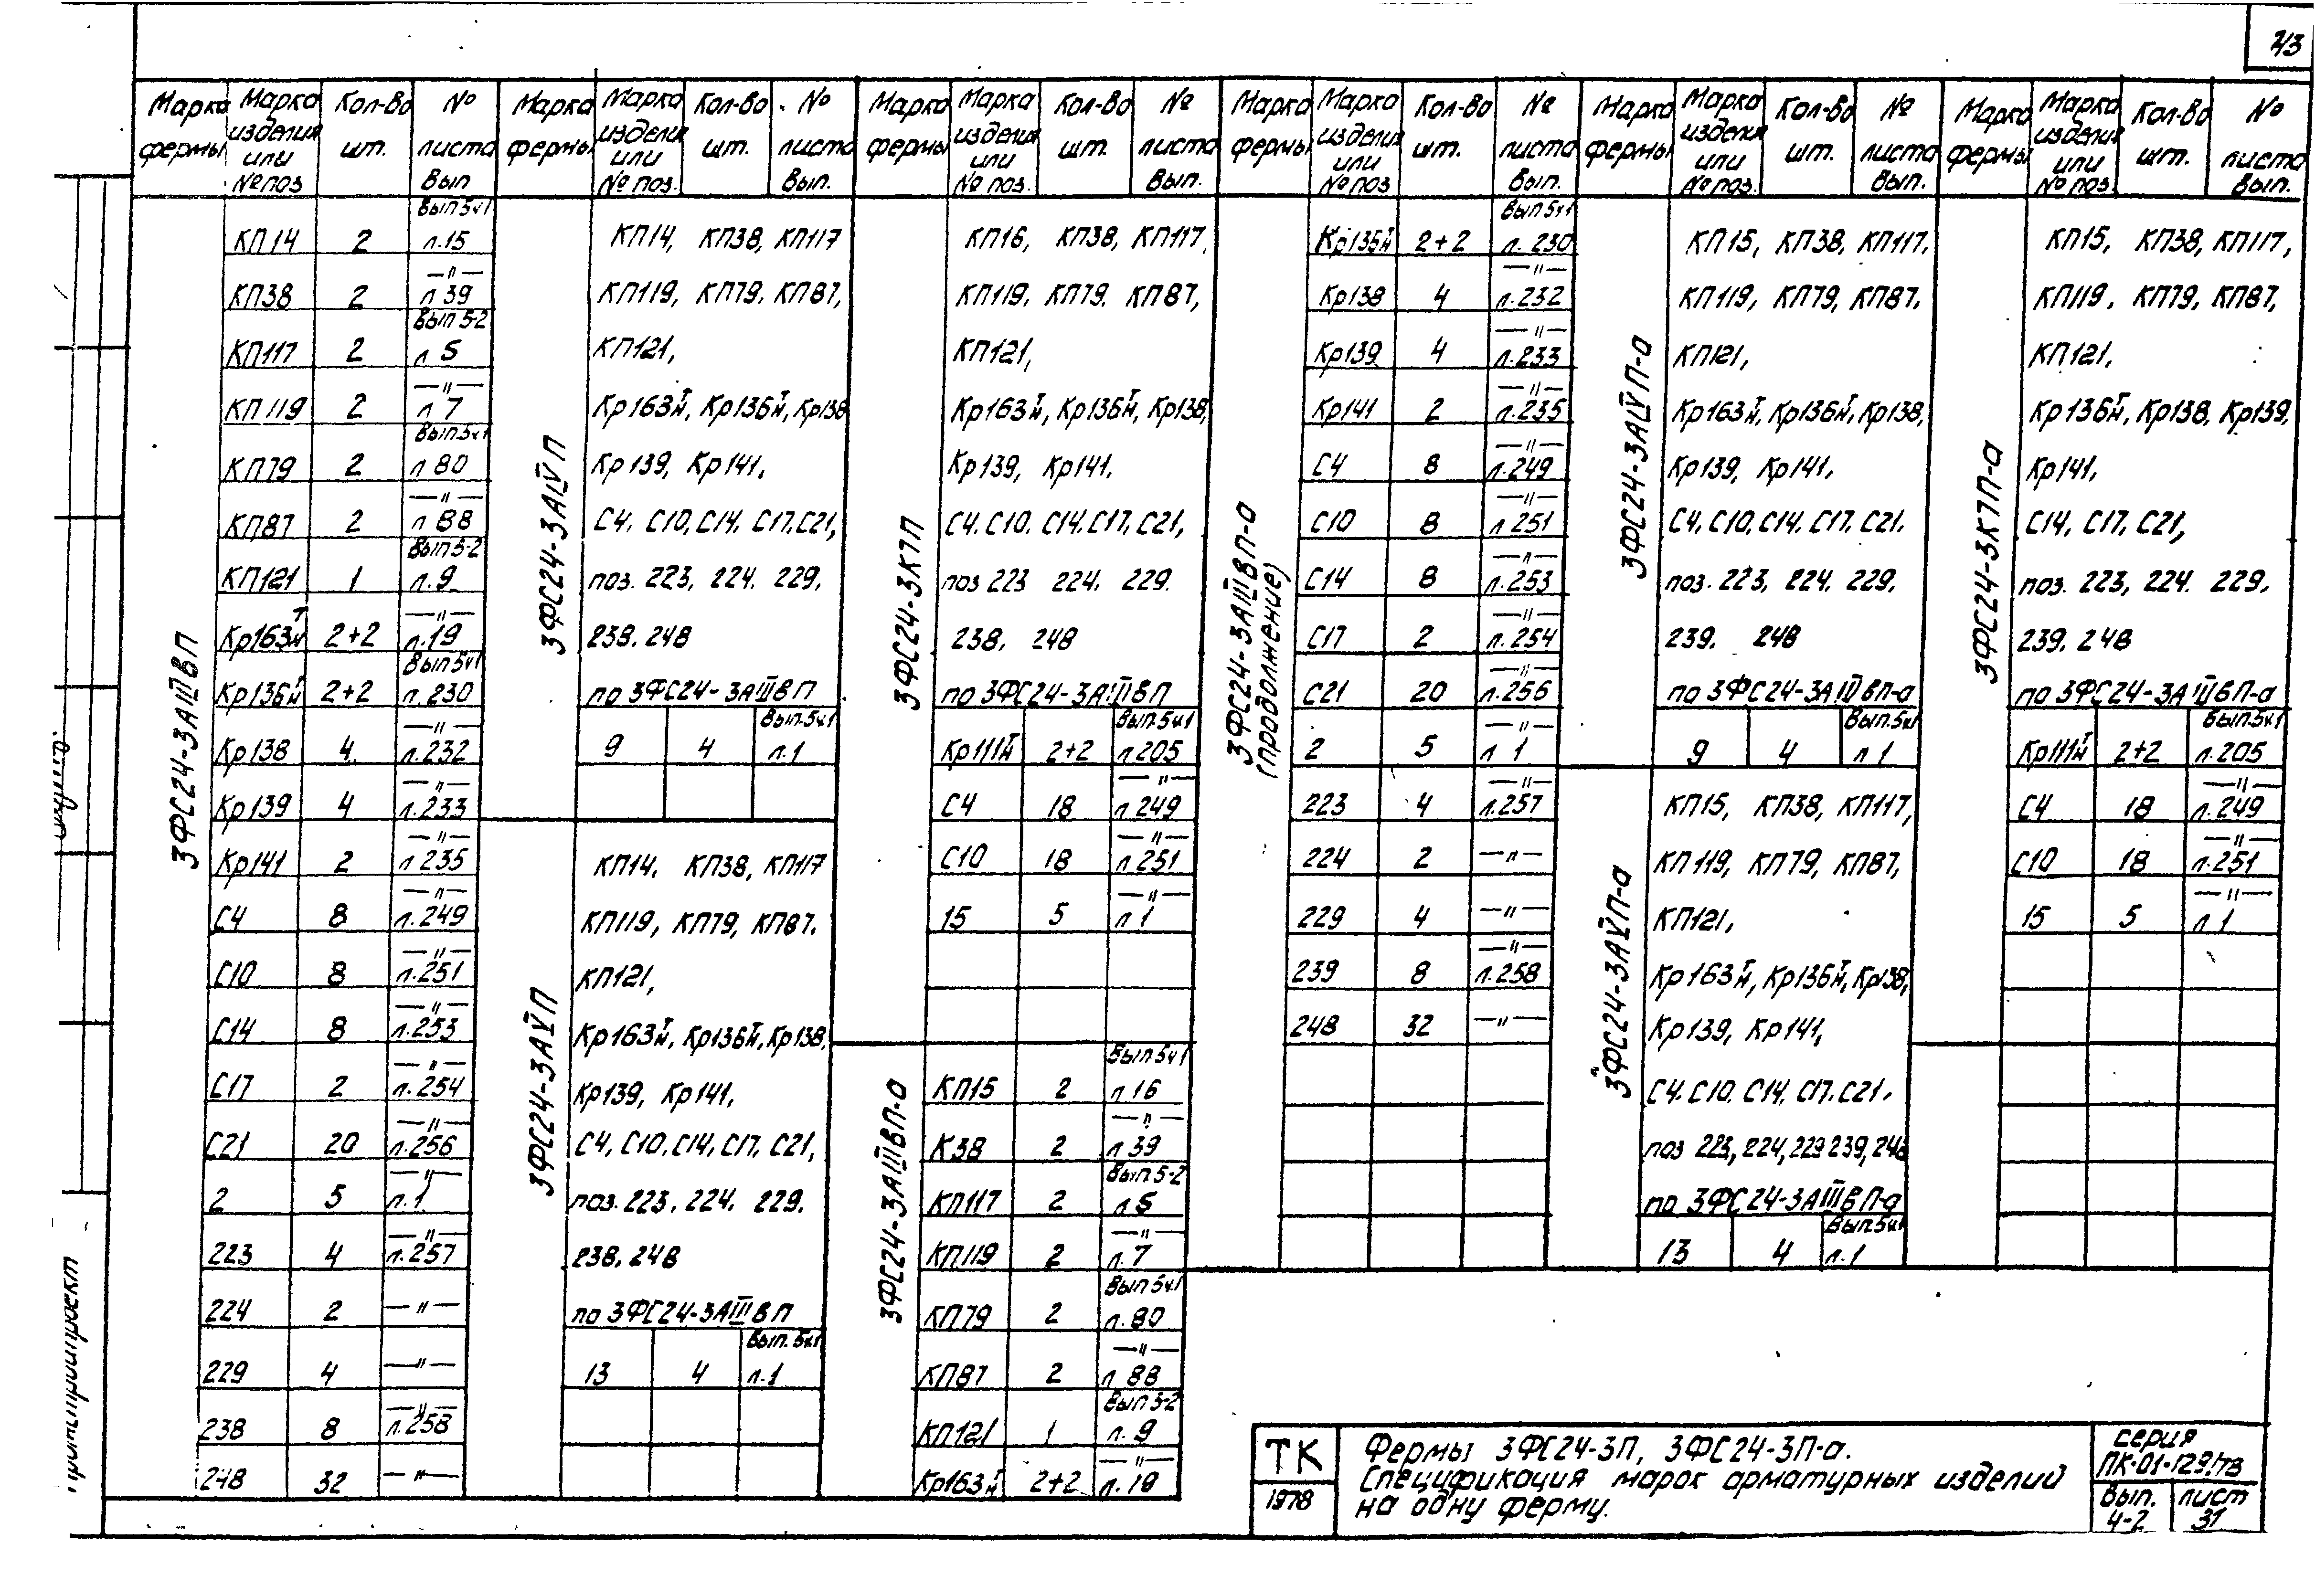 43
Марка фермы | Марка изделия или № поз | Кол-во шт. | № листа Вып
3ФС24-3АIIIВП
Вып 5ч1
КП14 2 л.15
КП38 2 —"— л 39
Вып 5-2
КП117 2 л 5
КП119 2 —"— л 7
Вып.5ч1
КП79 2 л 80
КП87 2 —"— л 88
Вып 5-2
КП121 1 л.9
Кр163Т/Н 2+2 —"— л.19
Вып 5ч1
Кр136Т/Н 2+2 л.230
Кр138 4 —"— л.232
Кр139 4 —"— л.233
Кр141 2 —"— л 235
С4 8 —"— л.249
С10 8 —"— л.251
С14 8 —"— л.253
С17 2 —"— л.254
С21 20 —"— л.256
2 5 —"— л.1
223 4 —"— л.257
224 2 —"—
229 4 —"—
238 8 —"— л.258
248 32 —"—
Марка фермы | Марка изделия или № поз. | Кол-во шт. | № листа Вып.
3ФС24-3АIVП
КП14, КП38, КП117
КП119, КП79. КП87,
КП121,
Кр163Т/Н, Кр136Т/Н, Кр138
Кр139, Кр141.
С4. С10, С14. С17. С21,
поз. 223, 224. 229,
238. 248
по 3ФС24-3АIIIВП
Вып.5ч1
9 4 л.1
3ФС24-3АVП
КП14. КП38, КП117
КП119, КП79, КП87.
КП121,
Кр163Т/Н, Кр136Т/Н, Кр138,
Кр139, Кр141,
С4, С10, С14, С17, С21,
поз. 223, 224. 229.
238, 248
по 3ФС24-3АIIIВП
Вып. 5ч1
13 4 л.1
Марка фермы | Марка изделия или № поз. | Кол-во шт. | № листа Вып.
3ФС24-3К7П
КП16, КП38, КП117,
КП119. КП79. КП87,
КП121,
Кр163Т/Н, Кр136Т/Н, Кр138,
Кр139, Кр141.
С4. С10. С14. С17. С21,
поз 223 224. 229.
238, 248
по 3ФС24-3АIIIВП
Вып.5ч1
Кр111Т/Н 2+2 л.205
С4 18 —"— л 249
С10 18 —"— л 251
15 5 —"— л 1
3ФС24-3АIIIВП-а
Вып 5ч1
КП15 2 л 16
К38 2 —"— л 39
Вып 5-2
КП117 2 л 5
КП119 2 —"— л.7
Вып 5ч.1
КП79 2 л.80
КП87 2 —"— л 88
Вып 5-2
КП121 1 л. 9
Кр163Т/Н 2+2 —"— л. 19
Марка фермы | Марка изделия или № поз | Кол-во шт. | № листа Вып.
3ФС24-3АIIIВП-а
(продолжение)
Вып 5ч1
Кр136Т/Н 2+2 л. 230
Кр138 4 —"— л.232
Кр139 4 —"— л.233
Кр141 2 —"— л.235
С4 8 —"— л.249
С10 8 —"— л.251
С14 8 —"— л.253
С17 2 —"— л.254
С21 20 —"— л.256
2 5 —"— л 1
223 4 —"— л.257
224 2 —"—
229 4 —"—
239 8 —"— л.258
248 32 —"—
Марка фермы | Марка изделия или № поз. | Кол-во шт. | № листа Вып.
3ФС24-3АIVП-а
КП15, КП38, КП117.
КП119, КП79, КП87.
КП121,
Кр163Т/Н, Кр136Т/Н, Кр138,
Кр139, Кр141,
С4, С10, С14. С17. С21.
поз. 223, 224. 229.
239. 248
по 3ФС24-3АIIIВП-а
Вып.5ч1
9 4 л 1
3ФС24-3АVП-а
КП15, КП38, КП117,
КП119, КП79, КП87,
КП121,
Кр163Т/Н, Кр136Т/Н, Кр138,
Кр139, Кр141,
С4. С10. С14. С17. С21.
поз 223, 224, 229 239, 248
по 3ФС24-3АIIIВП-а
Вып.5ч1
13 4 л.1
Марка фермы | Марка изделия или № поз. | Кол-во шт. | № листа Вып.
3ФС24-3К7П-а
КП15, КП38, КП117,
КП119, КП79, КП87,
КП121,
Кр136Т/Н, Кр138, Кр139,
Кр141.
С14, С17. С21,
поз. 223, 224. 229.
239. 248
по 3ФС24-3АIIIВП-а
Вып. 5ч1
Кр111Т/Н 2+2 л.205
С4 18 —"— л.249
С10 18 —"— л.251
15 5 —"— л 1
ТК
1978
Фермы 3ФС24-3П, 3ФС24-3П-а.
Спецификация марок арматурных изделий
на одну ферму.
серия
ПК-01-129/78
Вып. 4-2
лист 31